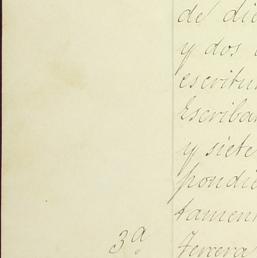 de die
y dos
escritu
Escriba
y siete
pondie
tament
3ª Tercera